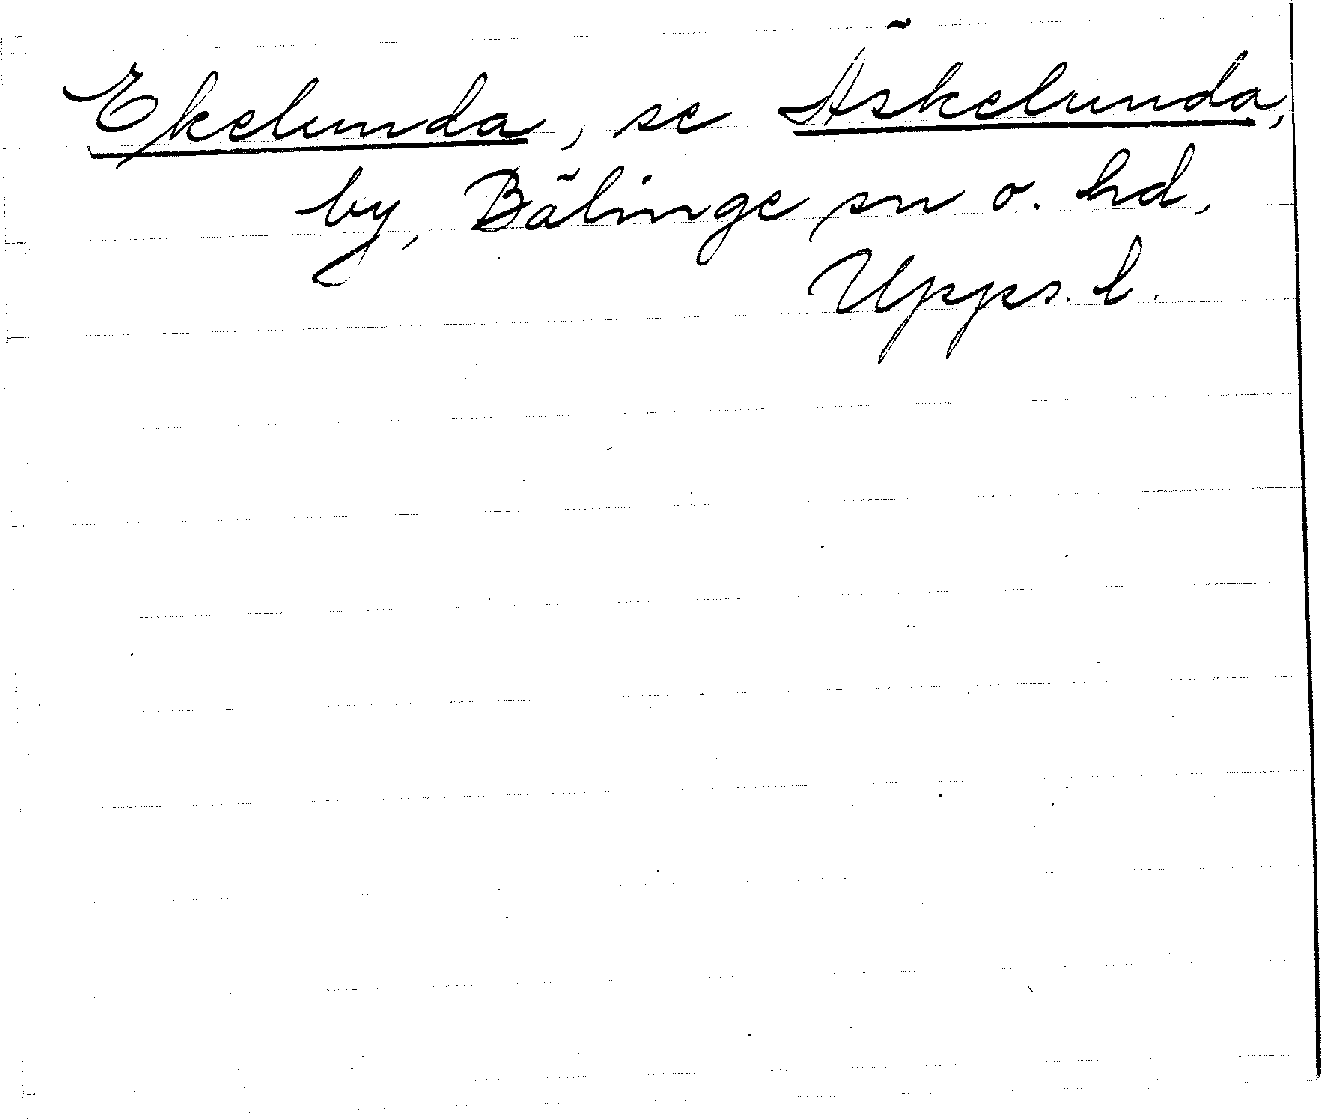 Ekelunda, se Äskelunda,
by, Bälinge sn o. hd,
Upps. l.